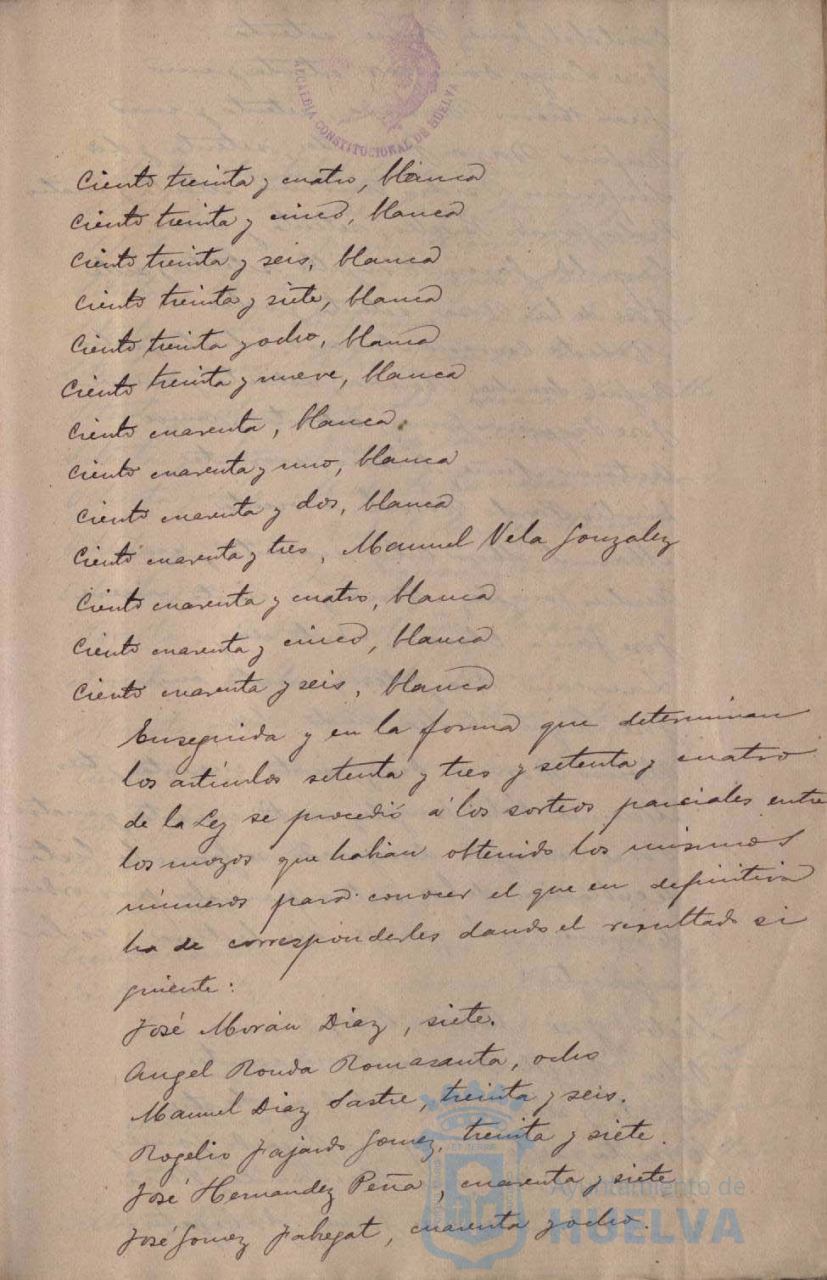 ALCALDIA CONSTITUCIONAL DE HUELVA
Ciento treinta y cuatro, blanca
Ciento treinta y cinco, blanca
Ciento treinta y seis, blanca
Ciento treinta y siete, blanca
Ciento treinta y ocho, blanca
Ciento treinta y nueve, blanca
Ciento cuarenta, blanca
Ciento cuarenta y uno, blanca
Ciento cuarenta y dos, blanca
Ciento cuarenta y tres, Manuel Vela Gonzalez
Ciento cuarenta y cuatro, blanca
Ciento cuarenta y cinco, blanca
Ciento cuarenta y seis, blanca
Enseguida y en la forma que determinan
los artículos setenta y tres y setenta y cuatro
de la Ley se procedió á los sorteos parciales entre
los mozos que habian obtenido los mismos
números para conocer el que en definitiva
ha de corresponderles dando el resultado si
guiente:
José Morán Diaz, siete.
Angel Ronda Romasanta, ocho
Manuel Diaz Sastre, treinta y seis.
Rogelio Fajardo Gomez, treinta y siete.
José Hernandez Peña, cuarenta y siete
José Gomez, cuarenta y ocho.
Ayuntamiento de
HUELVA